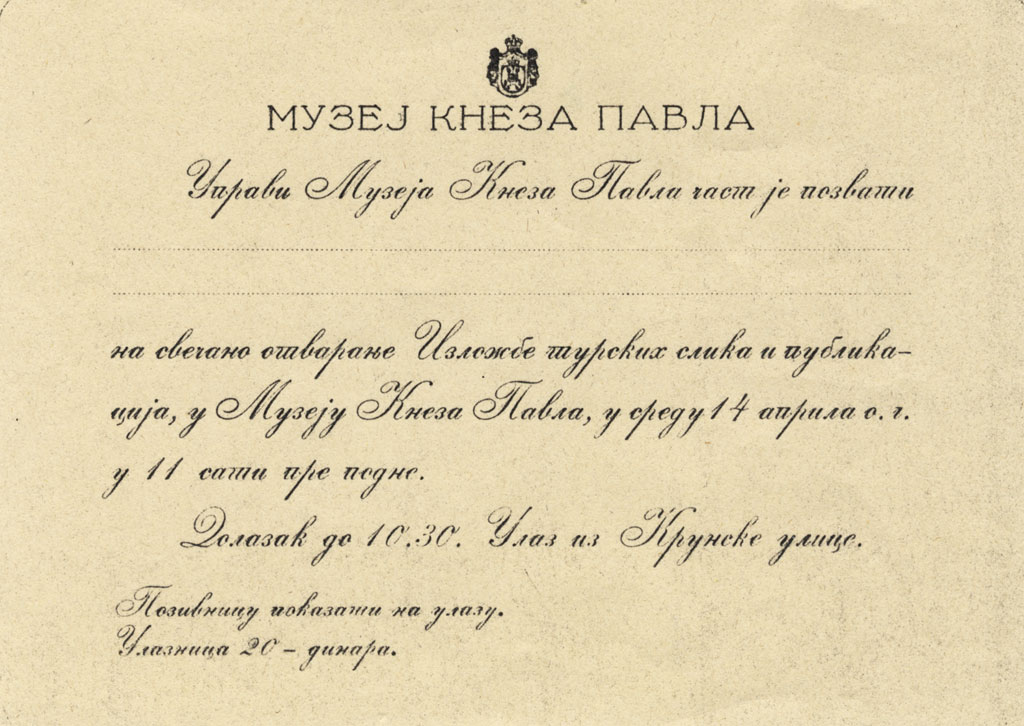 МУЗЕЈ КНЕЗА ПАВЛА
Управи Музеја Кнеза Павла част је позвати
на свечано отварање Изложбе турских слика и публика-
ција, у Музеју Кнеза Павла, у среду 14 априла о. г.
у 11 сати пре подне.
Долазак до 10.30. Улаз из Крунске улице.
Позивницу показати на улазу.
Улазница 20 – динара.